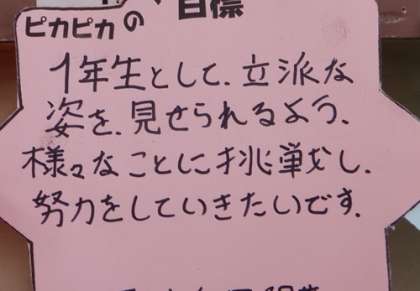 ピカピカの 目標
1年生として、立派な
姿を、見せられるよう、
様々なことに挑戦し、
努力をしていきたいです。